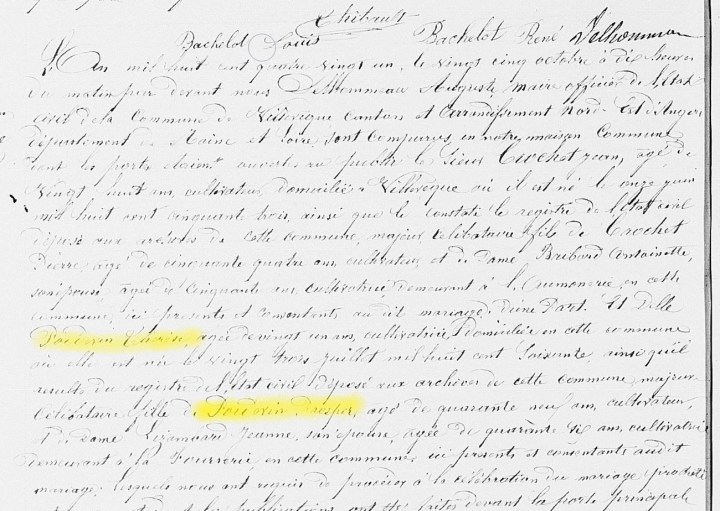 Thibault
Bachelot Louis Bachelot René Delhommeau
L'an mil huit cent quatre vingt un, le vingt cinq octobre à dix heures
du matin par devant nous Delhommeau Auguste, maire officier de l'Etat
civil de la Commune de Villevêque canton et arrondissement Nord-Est d'Angers
département de Maine et Loire, sont comparus en notre maison Commune
dont les portes étaient ouvertes au public le sieur Crochet Jean, agé de
Vingt huit ans, cultivateur, domicilié à Villevêque où il est né le onze juin
mil huit cent cinquante trois, ainsi que le constate le registre de l'état civil
déposé aux archives de cette commune, majeur célibataire fils de Crochet
Pierre, agé de cinquante quatre ans, cultivateur et de Dame Antoinette,
son épouse, agée de Cinquante ans, cultivatrice demeurant à l'Aumonerie en cette
commune, ici présents et consentants au dit mariage, d'une Part. Et Delle
agée de vingt un ans, cultivatrice domiciliée en cette commune
où elle est née le vingt trois juillet mil huit cent soixante, ainsi qu'il
résulte du registre de l'Etat civil déposé aux archives de cette Commune, majeure
célibataire fille de Prosper, agé de quarante neuf ans, cultivateur,
et de Dame Jeanne, son épouse, agée de quarante ans, cultivatrice
demeurant à la en cette commune, ici présents et consentants audit
mariage; lesquels nous ont requis de procéder à la célébration du mariage projeté
publications ont été faites devant la porte principale